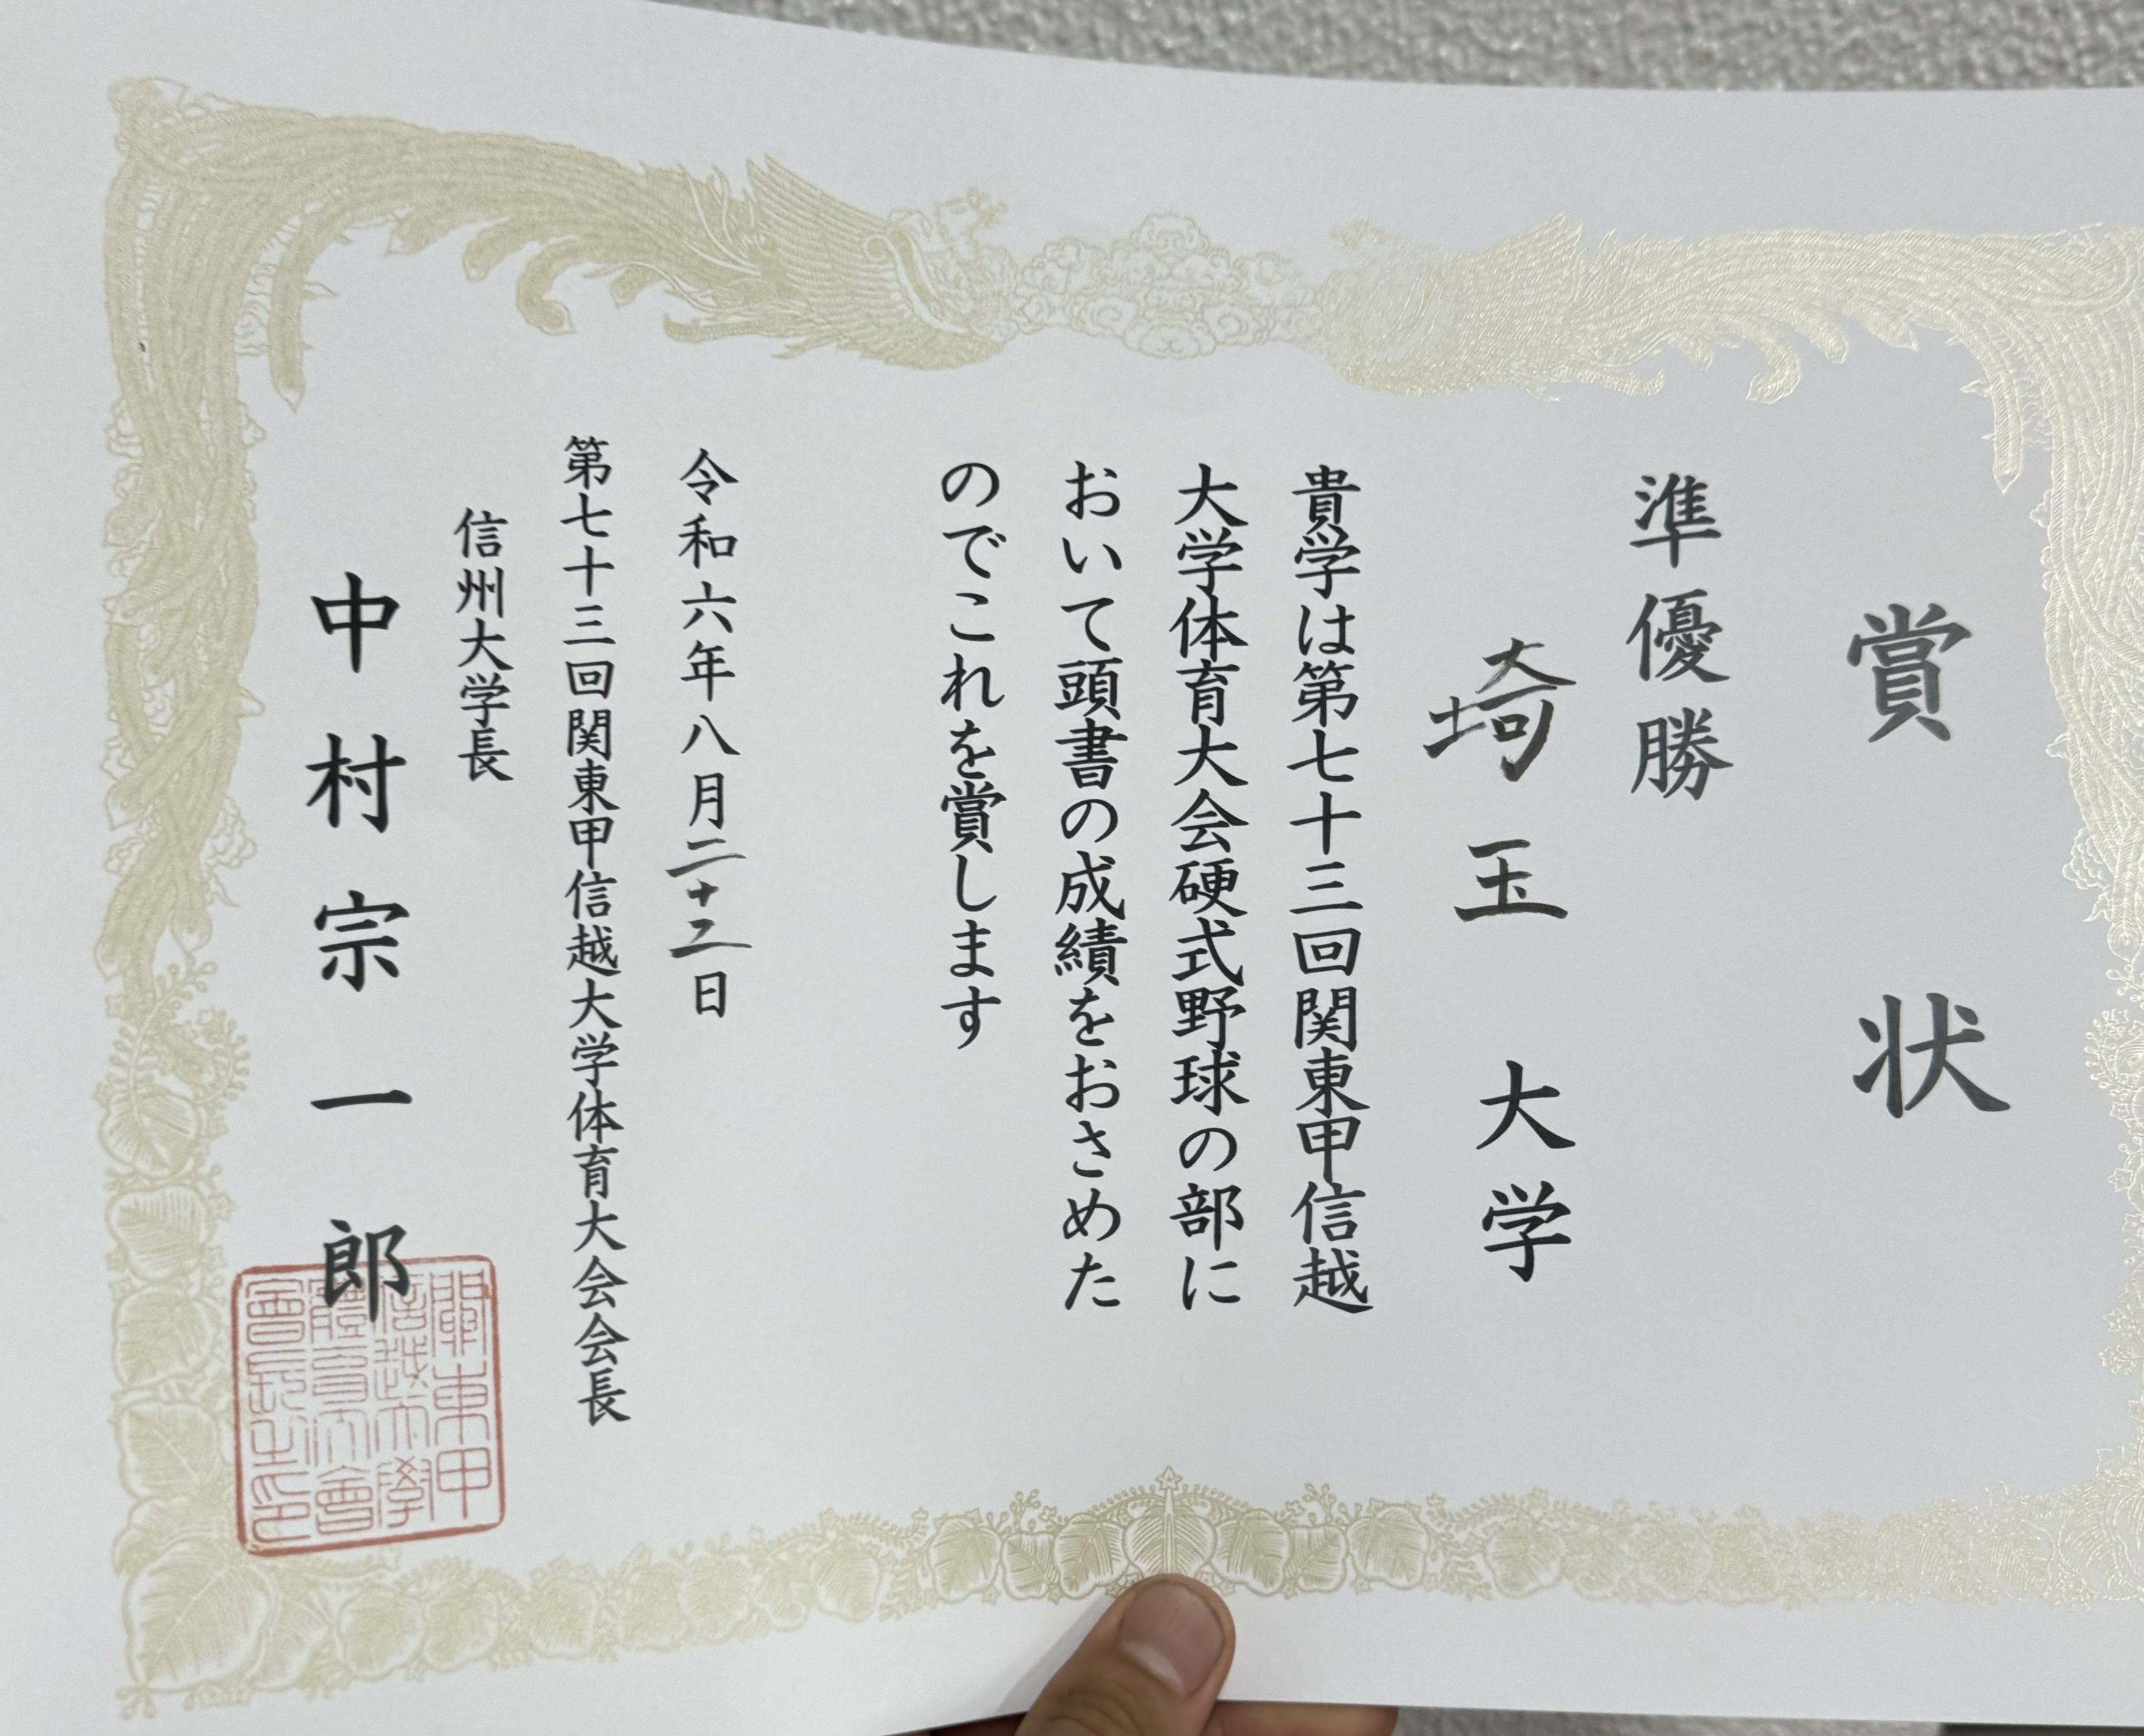 賞状
準優勝
埼玉大学
貴学は第七十三回関東甲信越
大学体育大会硬式野球の部に
おいて頭書の成績をおさめた
のでこれを賞します
令和六年八月二十二日
第七十三回関東甲信越大学体育大会会長
信州大学長
中村宗一郎
關東甲
信越大學
體育大會
會長之印